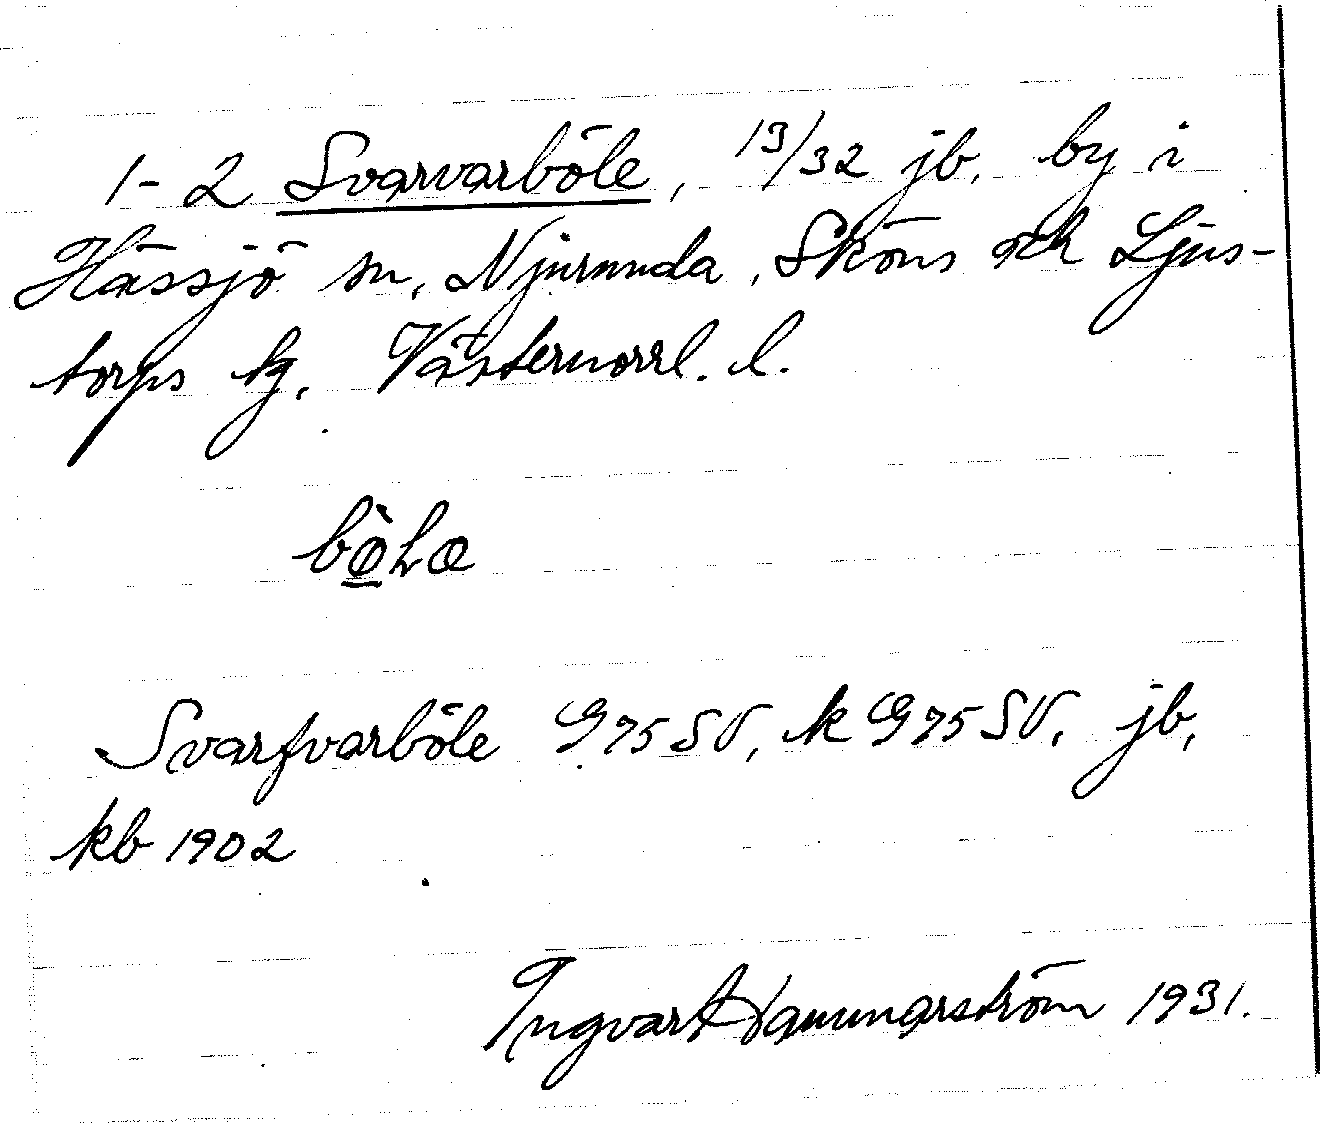 1-2 Svarvarböle, 13/32 jb. by i
Hässjö sn, Njurunda, Sköns och Ljus-
torps tg. Västernorrl. l.
Svarfvarböle G 75 SV, k G 75 SV, jb,
kb 1902
Ingvar Hammarström 1931.